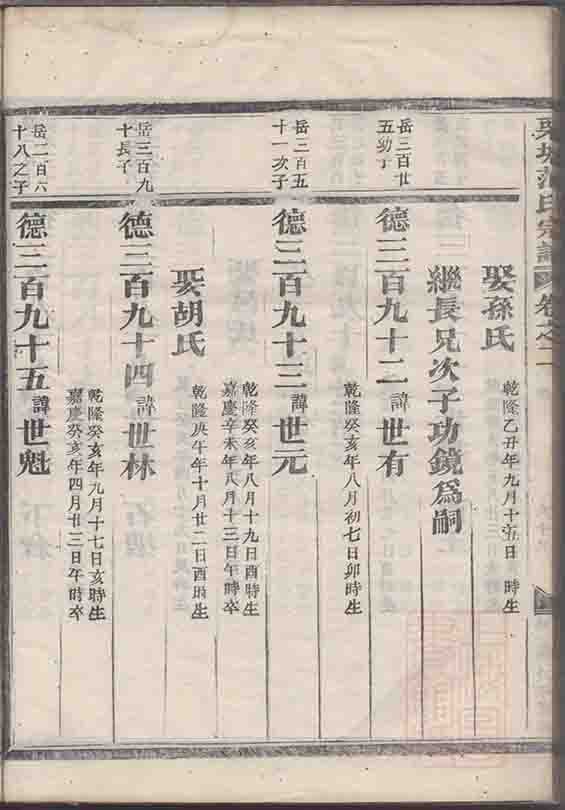 氏宗譜 卷之二
娶孫氏
乾隆乙丑年九月十五日 時生
繼長兄次子功鏡爲嗣
岳三百廿
五幼子
德三百九十二諱世有
乾隆癸亥年八月初七日卯時生
岳三百五
十一次子
德三百九十三諱世元
乾隆癸亥年八月十九日酉時生
嘉慶辛未年八月十三日午時卒
娶胡氏
乾隆庚午年十月廿二日酉時生
岳三百九
十長子
德三百九十四諱世林
乾隆癸亥年九月十七日亥時生
嘉慶癸亥年四月廿三日午時卒
岳二百六
十八之子
德三百九十五諱世魁